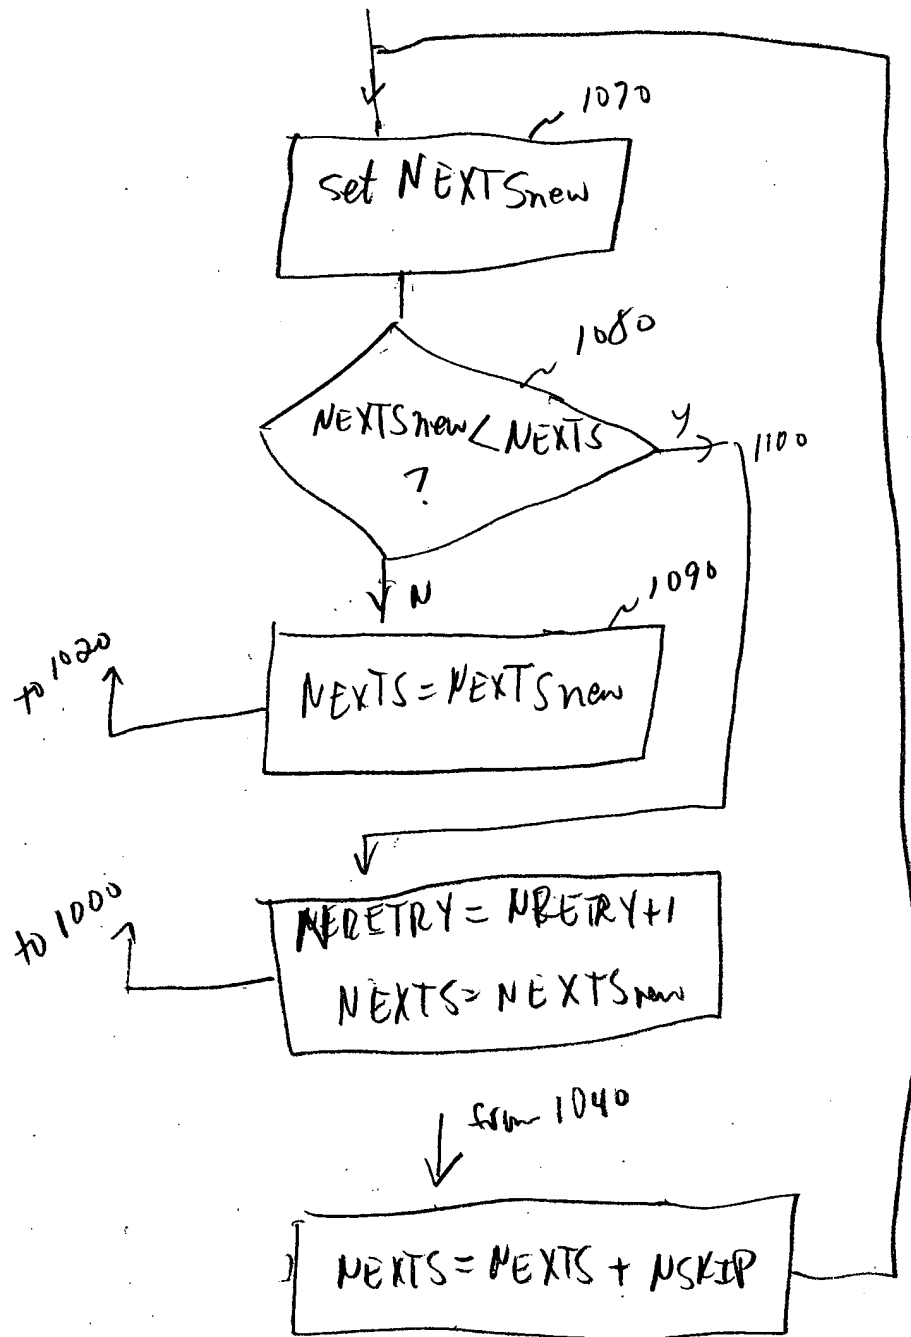 1070
set NEXTSnew
1080
NEXTSnew < NEXTS
?
Y
1100
N
1090
to 1020
NEXTS = NEXTSnew
to 1000
= NRETRY+1
NEXTS = NEXTSnew
from 1040
NEXTS = NEXTS + NSKIP